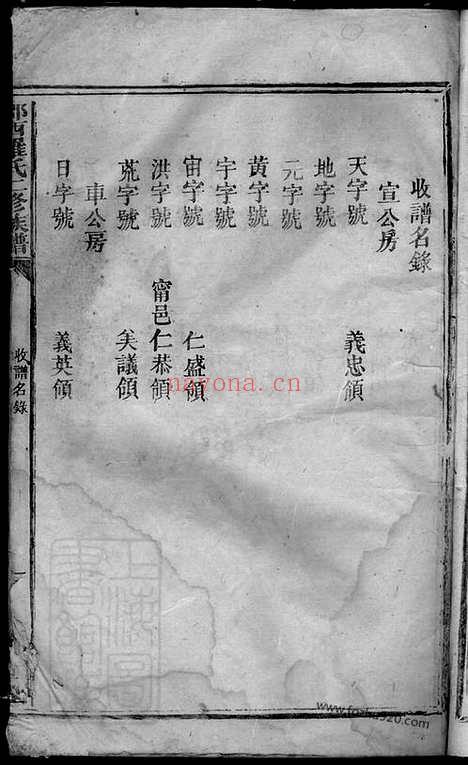 收譜名錄
宣公房
天字號 義忠領
地字號
元字號
黃字號
宇字號
宙字號 仁盛領
洪字號 甯邑仁恭領
荒字號 美議領
車公房
日字號 義英領
西羅氏二修族譜
收譜名錄
nayona.cn